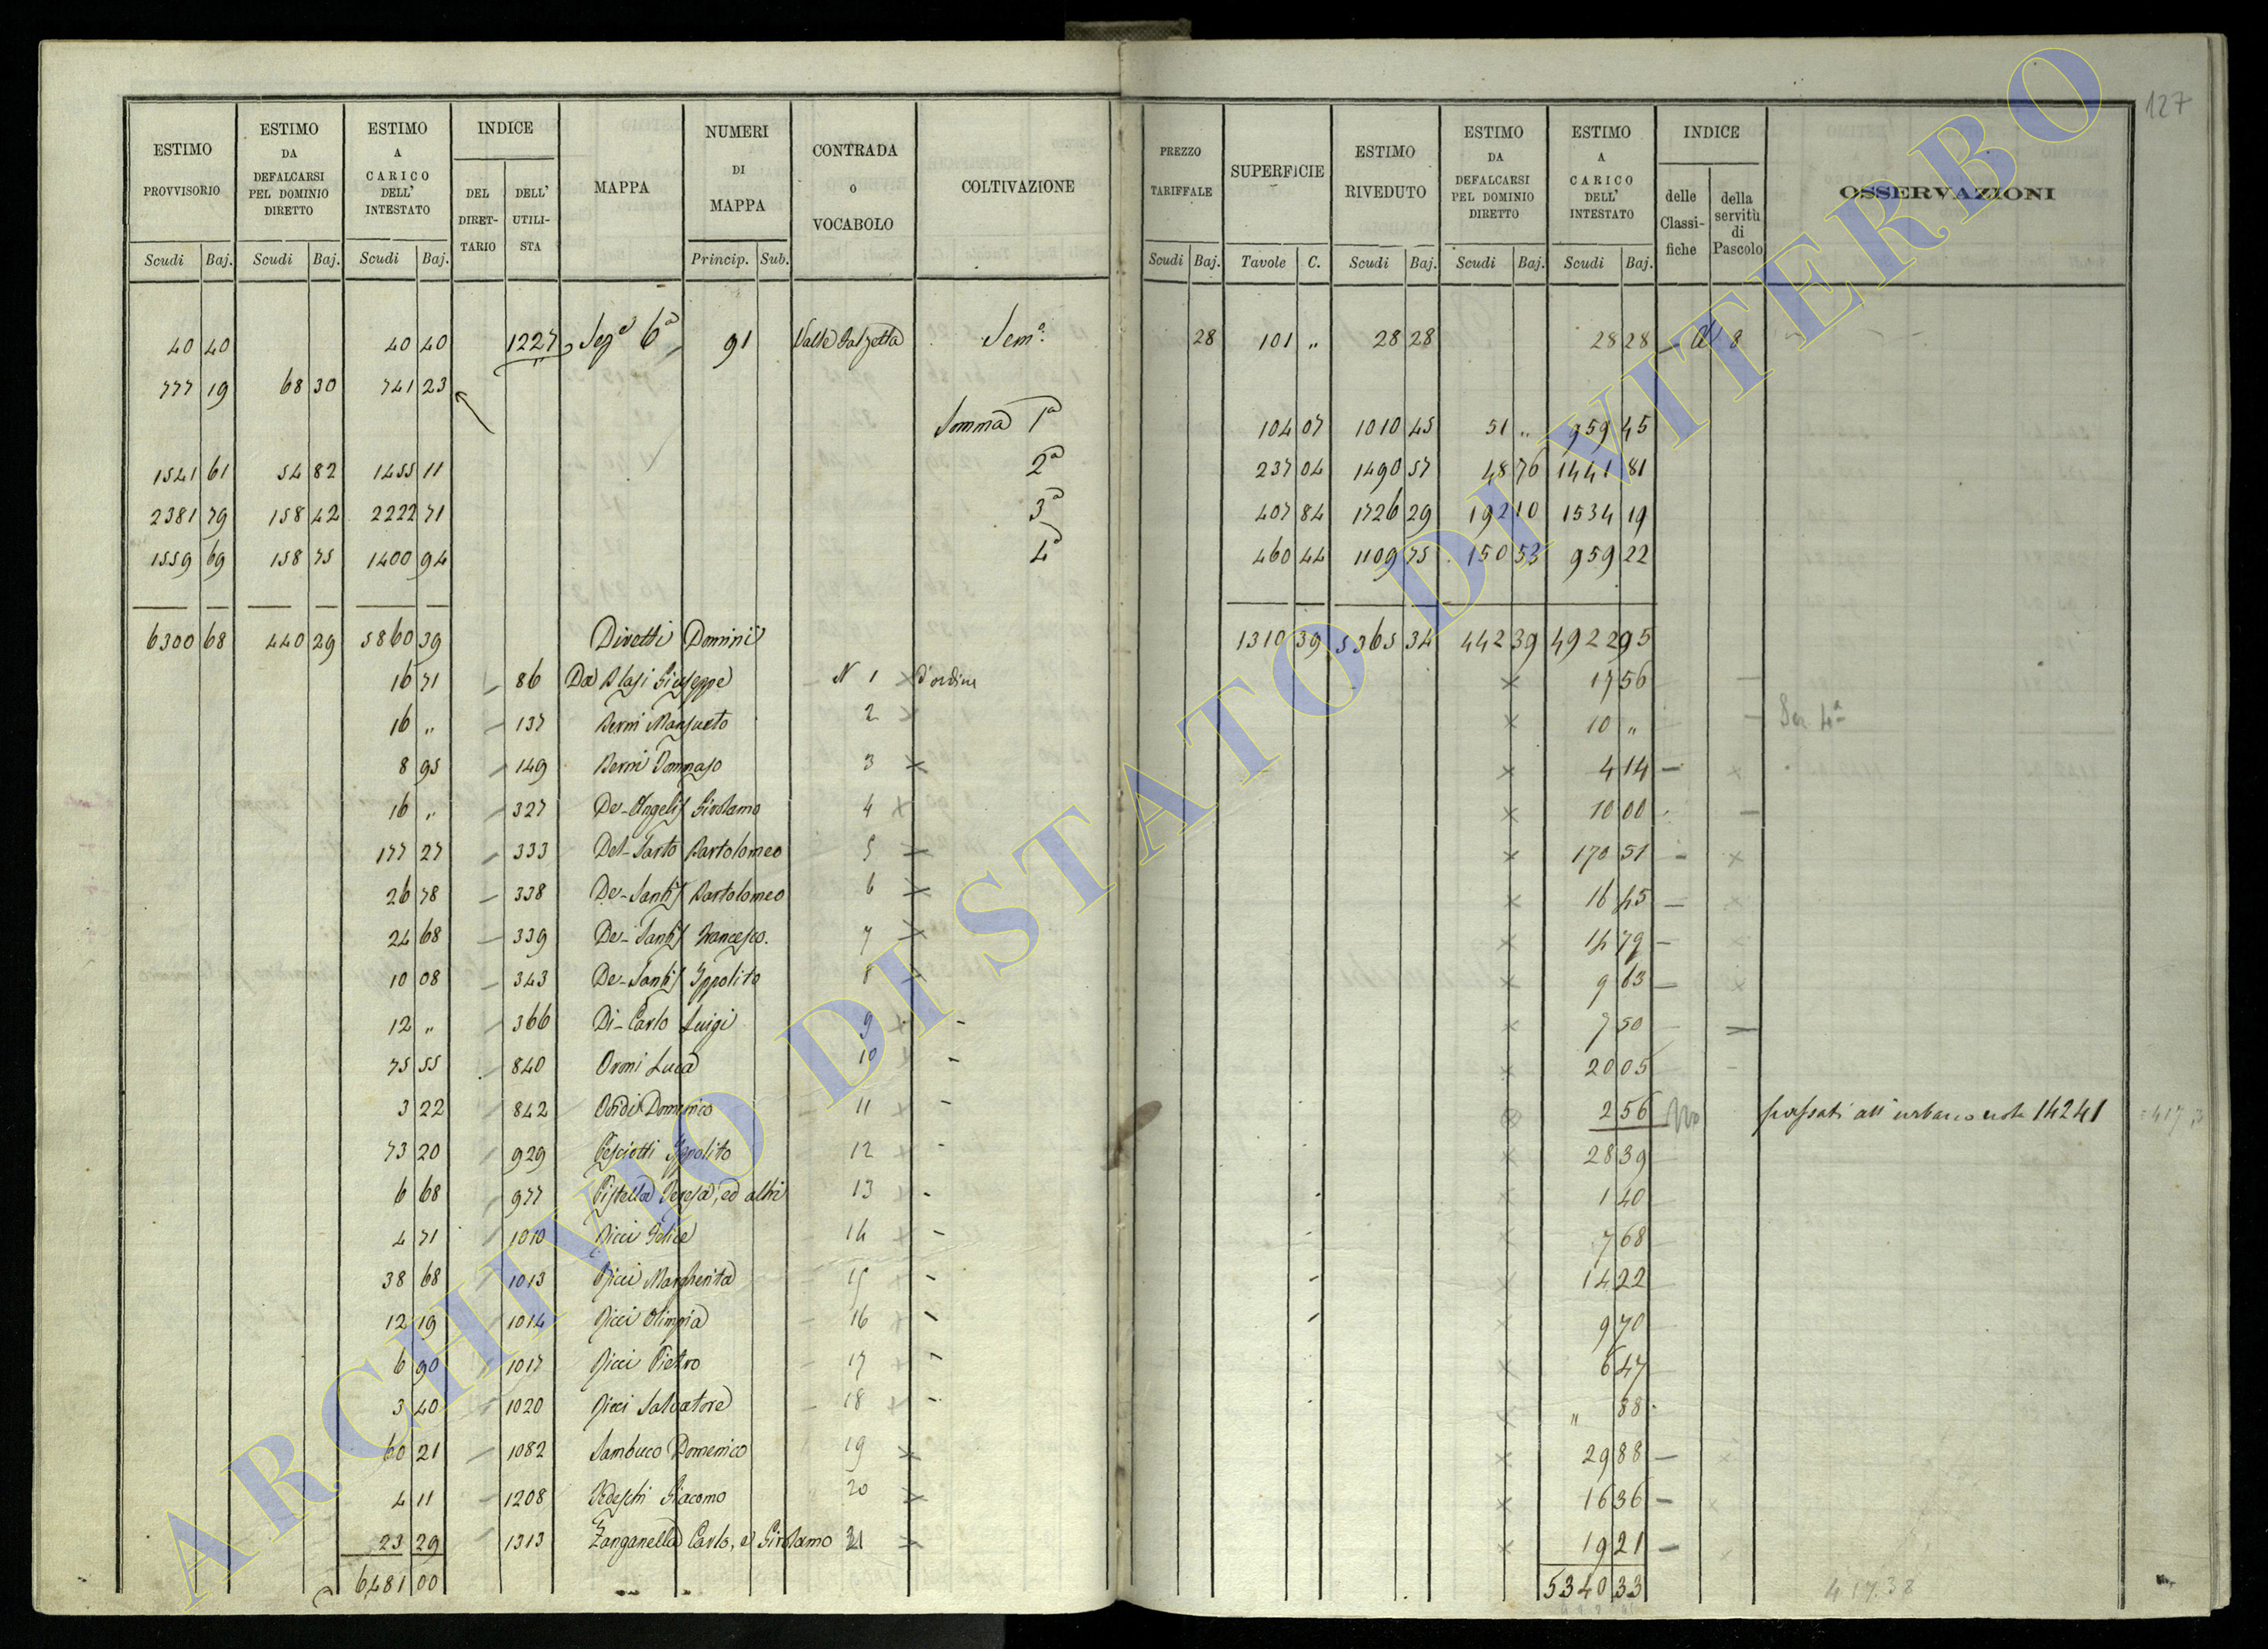 127
ESTIMO PROVVISORIO | ESTIMO DA DEFALCARSI PEL DOMINIO DIRETTO | ESTIMO A CARICO DELL' INTESTATO | INDICE | MAPPA | NUMERI DI MAPPA | CONTRADA o VOCABOLO | COLTIVAZIONE | PREZZO TARIFFALE | SUPERFICIE | ESTIMO RIVEDUTO | ESTIMO DA DEFALCARSI PEL DOMINIO DIRETTO | ESTIMO A CARICO DELL' INTESTATO | INDICE | OSSERVAZIONI
DEL DIRET-TARIO | DELL' UTILI-STA | delle Classi-fiche | della servitù di Pascolo
Scudi | Baj. | Scudi | Baj. | Scudi | Baj. | Princip. | Sub. | Scudi | Baj. | Tavole | C. | Scudi | Baj. | Scudi | Baj. | Scudi | Baj.
40 40 | 40 40 | 1227 | Sez.e 6a | 91 | Sem.a | 28 | 101 „ | 28 28 | 28 28 | 8
777 19 | 68 30 | 741 23
Somma 1a | 104 07 | 1010 45 | 51 „ | 959 45
1541 61 | 54 82 | 1455 11 | 2a | 237 04 | 1490 57 | 48 76 | 1441 81
2381 79 | 158 42 | 2222 71 | 3a | 407 84 | 1726 29 | 192 10 | 1534 19
1559 69 | 158 75 | 1400 94 | 4a | 460 44 | 1109 75 | 150 53 | 959 22
6300 68 | 440 29 | 5860 39 | Diretti Dominii | 1310 39 | 5365 34 | 442 39 | 4922 95
16 71 | 86 | De Blasi Giuseppe | N 1 | d'ordine | 17 56
16 „ | 137 | Berni Mansueto | 2 | 10 „ | Sez. 4a
8 95 | 149 | Berni Tommaso | 3 | 4 14
16 „ | 327 | De-Angelis Girolamo | 4 | 10 00
177 27 | 333 | Del-Sarto Bartolomeo | 5 | 170 51
26 78 | 338 | De-Santis Bartolomeo | 6 | 16 45
24 68 | 339 | De-Santis Francesco. | 7 | 14 79
10 08 | 343 | De-Santis Ippolito | 8 | 9 63
12 „ | 366 | Di-Carlo Luigi | 9 | 7 50
75 55 | 840 | Oroni Luca | 10 | 20 05
3 22 | 842 | Domenico | 11 | 2 56 | No | passati all'urbano 14241 | 417.3
73 20 | 929 | Pesciotti Ippolito | 12 | 28 39
6 68 | 977 | Pistella Teresa, ed altri | 13 | 1 40
4 71 | 1010 | Ricci Felice | 14 | 7 68
38 68 | 1013 | Ricci Margherita | 15 | 14 22
12 19 | 1014 | Ricci Olimpia | 16 | 9 70
6 90 | 1017 | Ricci Pietro | 17 | 6 47
3 40 | 1020 | Ricci Salvatore | 18 | „ 88
60 21 | 1082 | Sambuco Domenico | 19 | 29 88
4 11 | 1208 | Tedeschi Giacomo | 20 | 16 36
23 29 | 1313 | Zanganella Carlo, e Girolamo | 21 | 19 21
6481 00 | 5340 33 | 417.38
ARCHIVIO DI STATO DI VITERBO